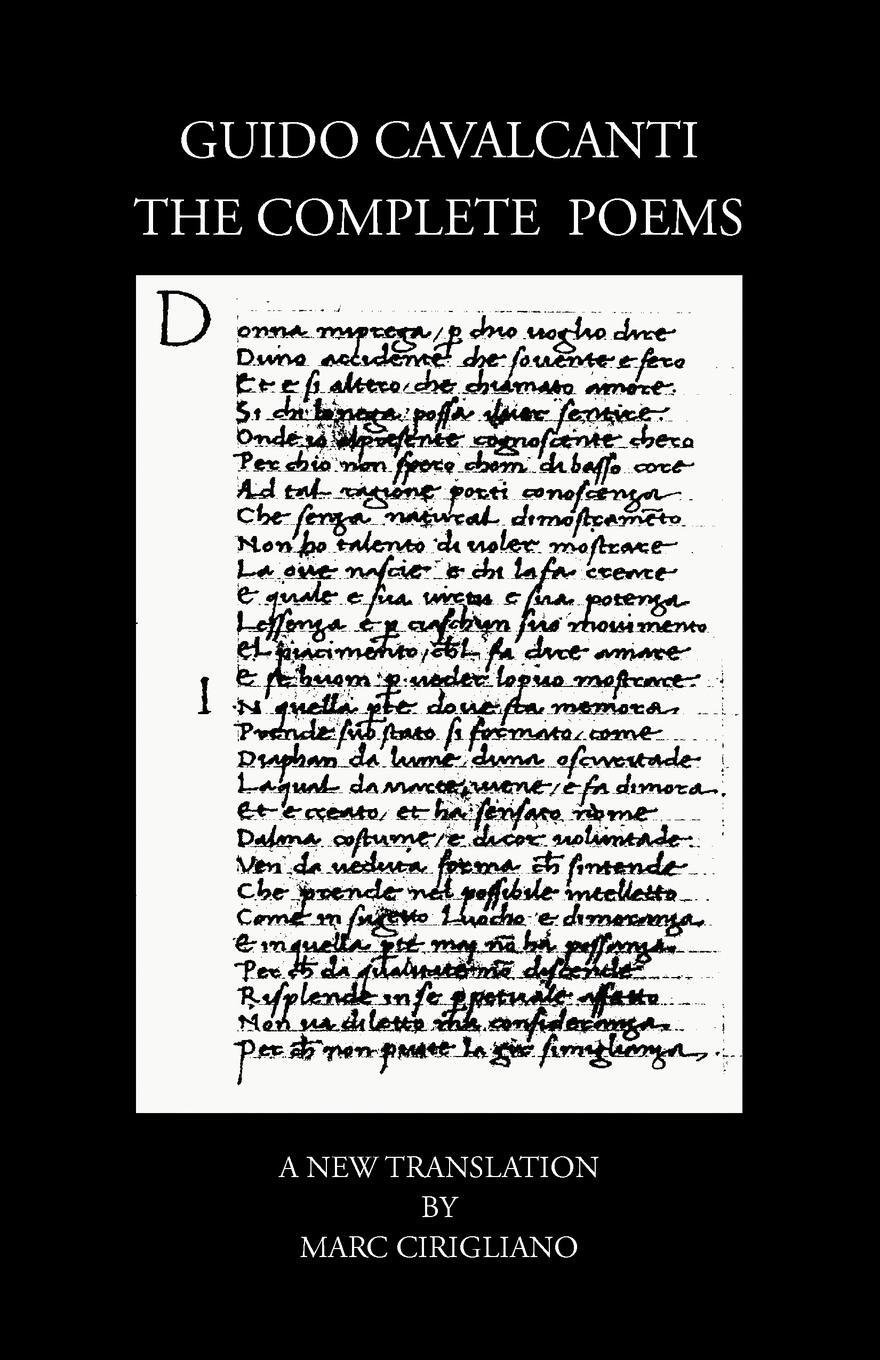 GUIDO CAVALCANTI
THE COMPLETE POEMS
Donna mi prega / p̱ chio uoglio dire
Duno accidente che souente e fero
Et e si altero, che chiamato amore.
Si chi lo nega possa iluer sentire.
Onde io alpresente cognoscente chero
Per chio non spero chom di basso core
Ad tal ragione porti conoscenza
Che senza natural dimostramēto
Non ho talento di uoler mostrare
La oue nascie e chi lafa creare
E quale e sua uirtu e sua potenza
Lessenza e p̱ ciaschun suo mouimento
el piacimento, ch̄l fa dire amare
E se huom p̱ ueder lopuo mostrare.
IN quella pte doue sta memora.
Prende suo stato si formato, come
Diaphan da lume duna oscuritade
Laqual da marte, uiene / e fa dimora.
Et e creato, et ha sensato nome
Dalma costume, e dicor uoluntade
Ven da ueduta forma ch̄ sintende
Che prende nel possibile intelletto
Come in sugetto luocho e dimoranza.
E in quella pte mai nō ha possanza.
Per ch̄ da qualitate nō discende
Risplende in se p̱petuale effetto
Non ua diletto ma consideranza.
Per ch̄ non puote la gir simiglianza.
A NEW TRANSLATION
BY
MARC CIRIGLIANO